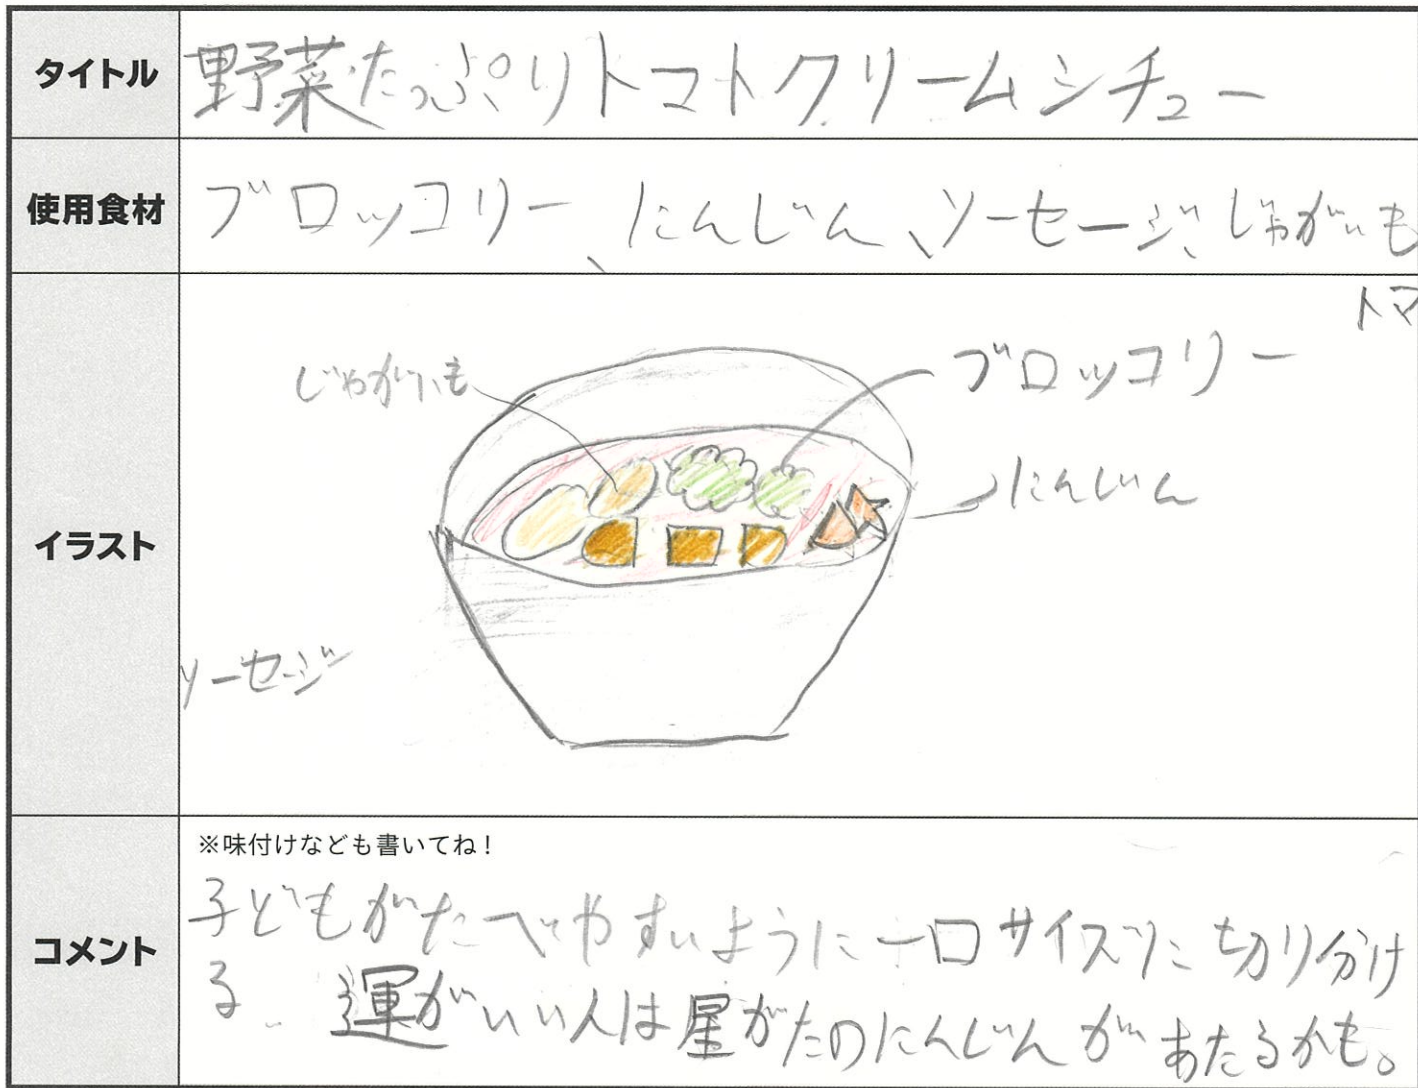 タイトル
野菜たっぷりトマトクリームシチュー
使用食材
ブロッコリー、にんじん、ソーセージ、じゃがいも
トマ
イラスト
じゃがいも
ブロッコリー
にんじん
ソーセージ
コメント
※味付けなども書いてね！
子どもがたべやすいように一口サイズに切り分け
る。運がいい人は星がたのにんじんがあたるかも。